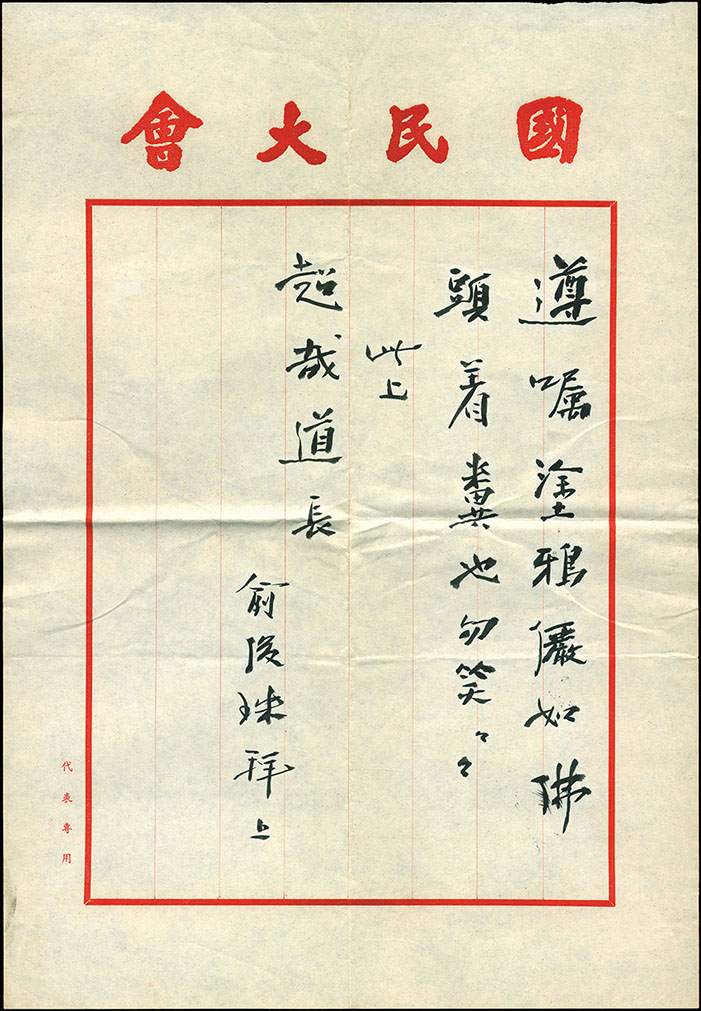 國民大會
遵嘱塗鴉儼如佛
頭着糞也勿笑々々
此上
超哉道長
俞俊珠拜上
代表專用